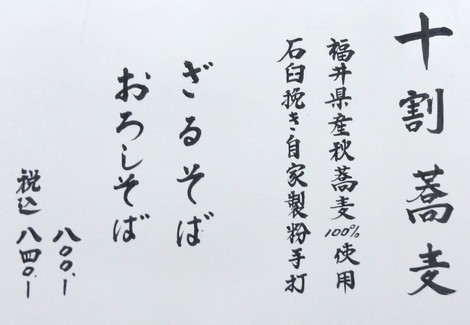 十割蕎麦
福井県産秋蕎麦100%使用
石臼挽き自家製粉手打
ざるそば
おろしそば
八〇〇.-
税込八四〇.-